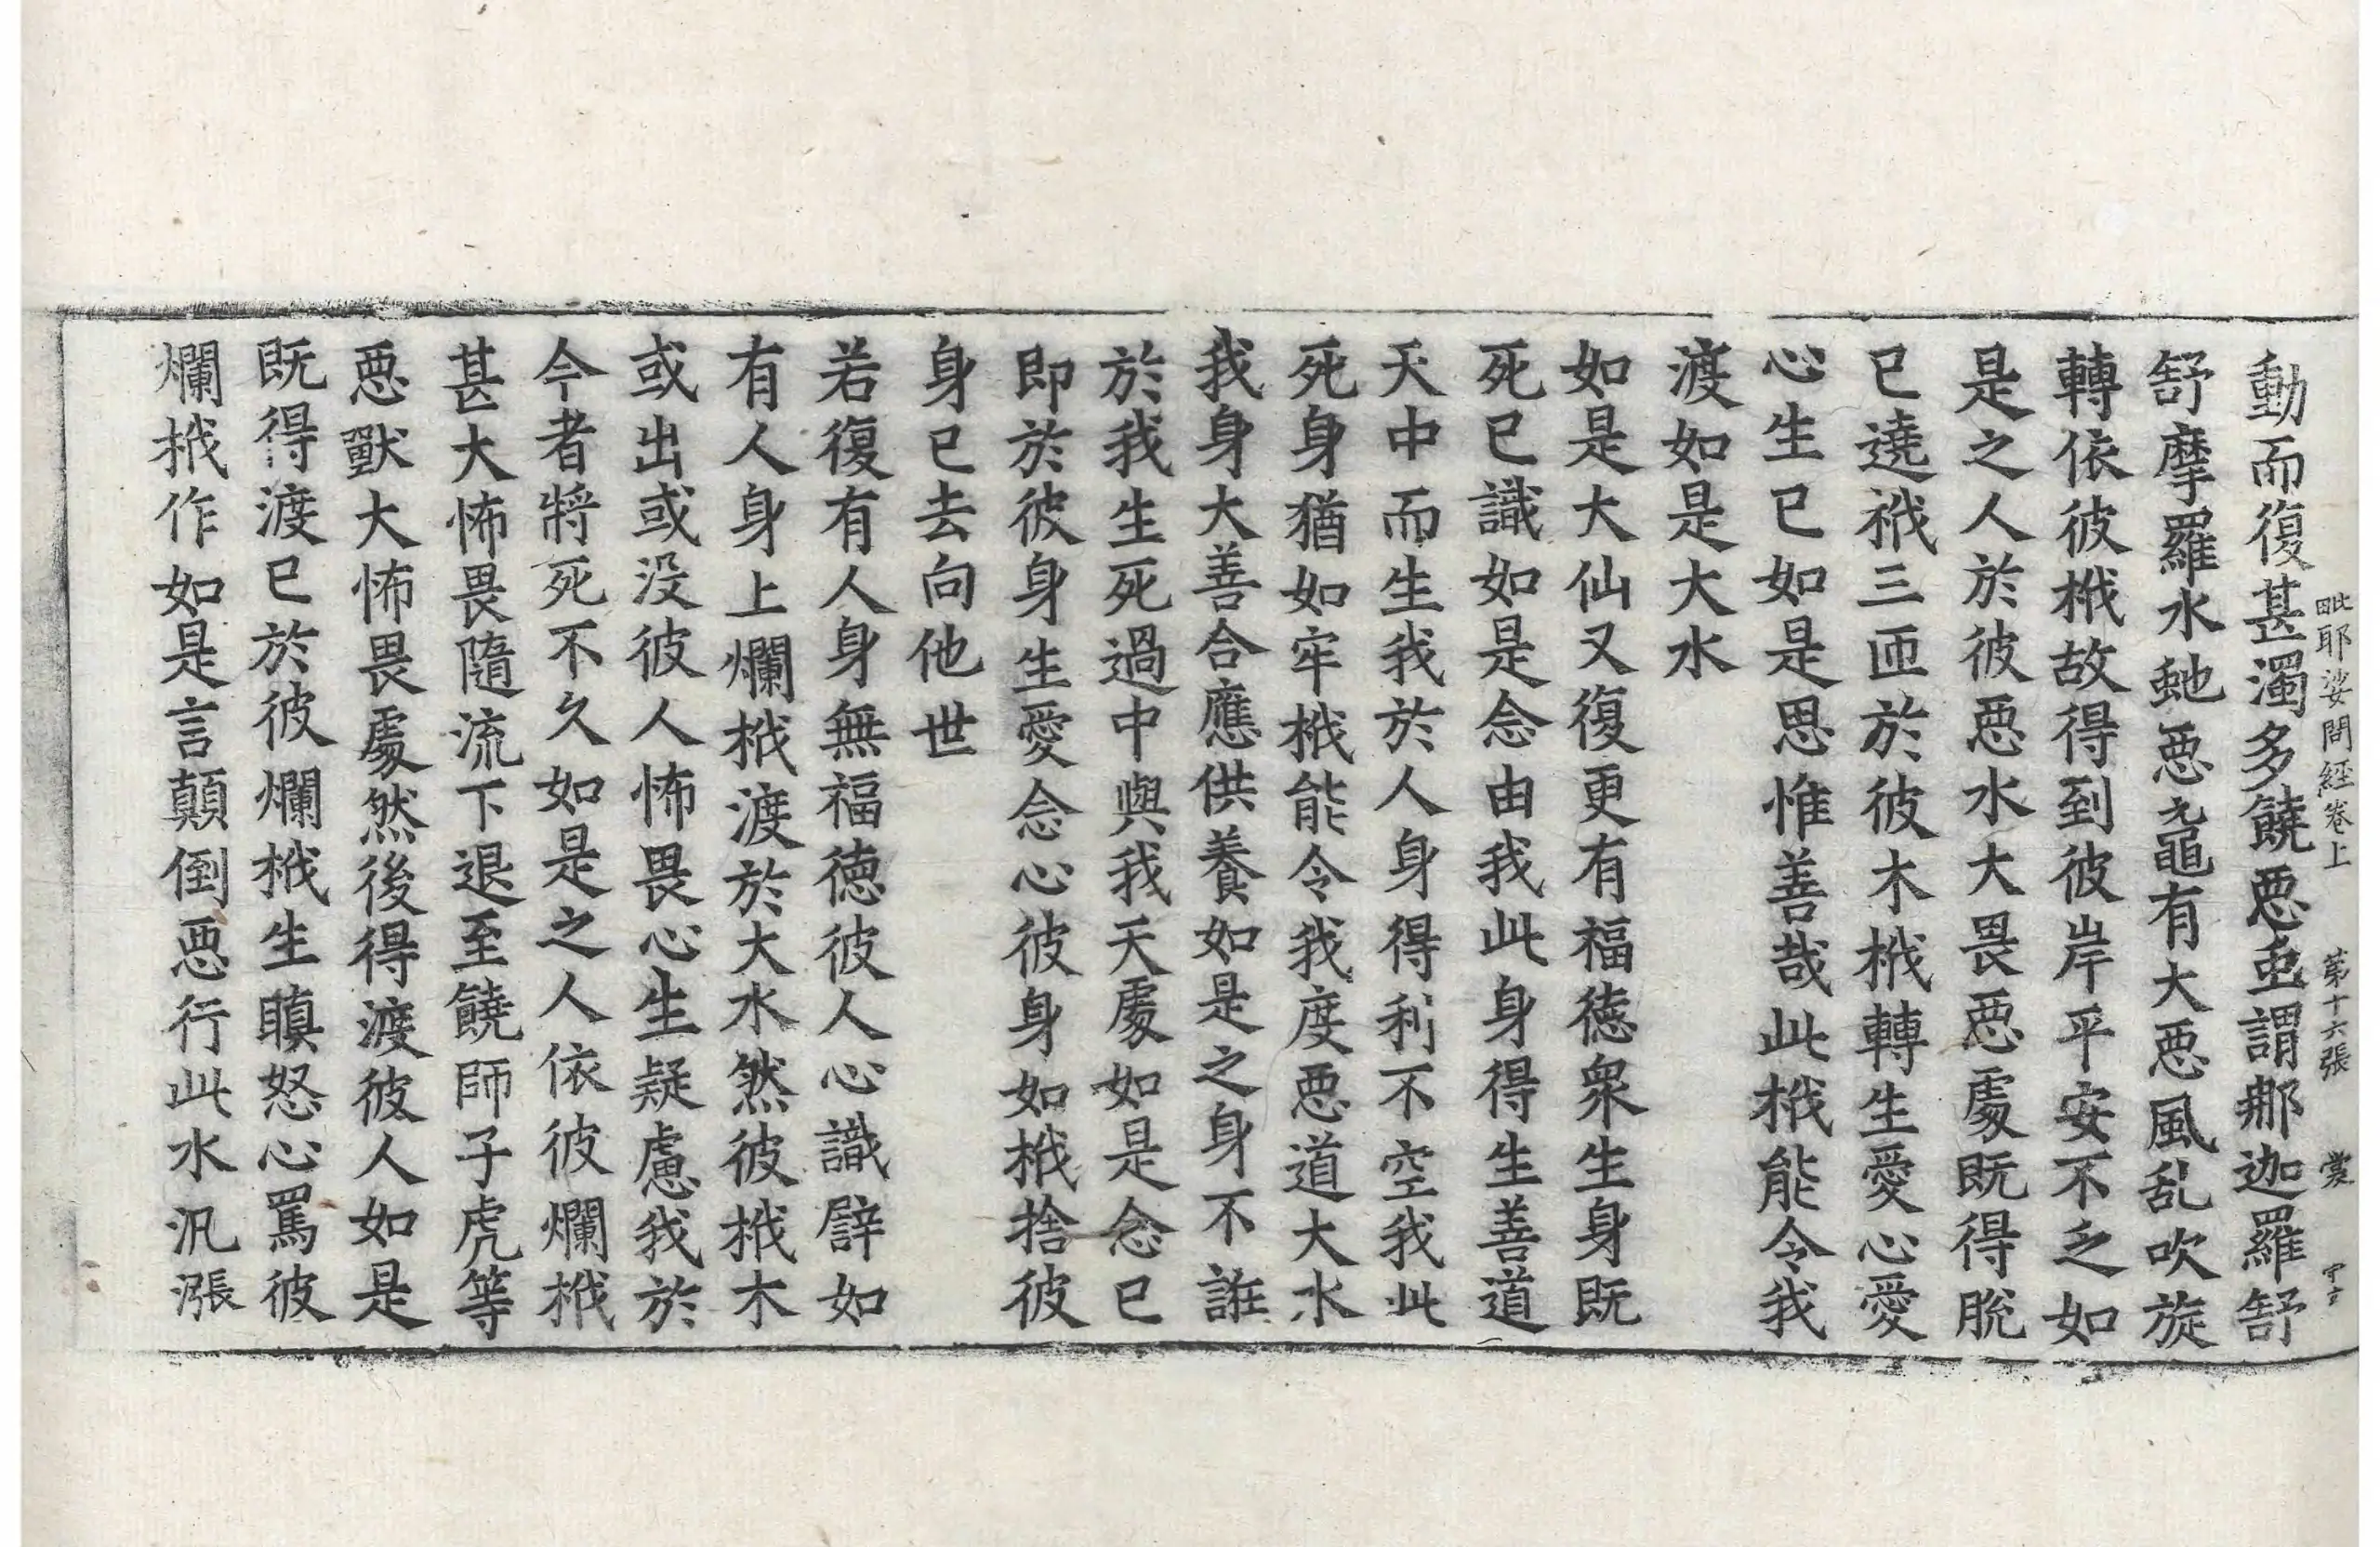 毗耶娑問經卷上 第十六張 裳
動而復甚濁多饒惡虫謂那迦羅舒
舒摩羅水虵惡黿黽有大惡風乱吹旋
轉依彼栰故得到彼岸平安不乏如
是之人於彼惡水大畏惡處既得脫
已遶栰三匝於彼木栰轉生愛心愛
心生已如是思惟善哉此栰能令我
渡如是大水
如是大仙又復更有福德衆生身既
死已識如是念由我此身得生善道
天中而生我於人身得利不空我此
死身猶如牢栰能令我度惡道大水
我身大善合應供養如是之身不誑
於我生死過中與我天處如是念已
即於彼身生愛念心彼身如栰捨彼
身已去向他世
若復有人身無福德彼人心識譬如
有人身上爛栰渡於大水然彼栰木
或出或没彼人怖畏心生疑慮我於
今者將死不久如是之人依彼爛栰
甚大怖畏隨流下退至饒師子虎等
惡獸大怖畏處然後得渡彼人如是
既得渡已於彼爛栰生瞋怒心罵彼
爛栰作如是言顛倒惡行此水汎漲